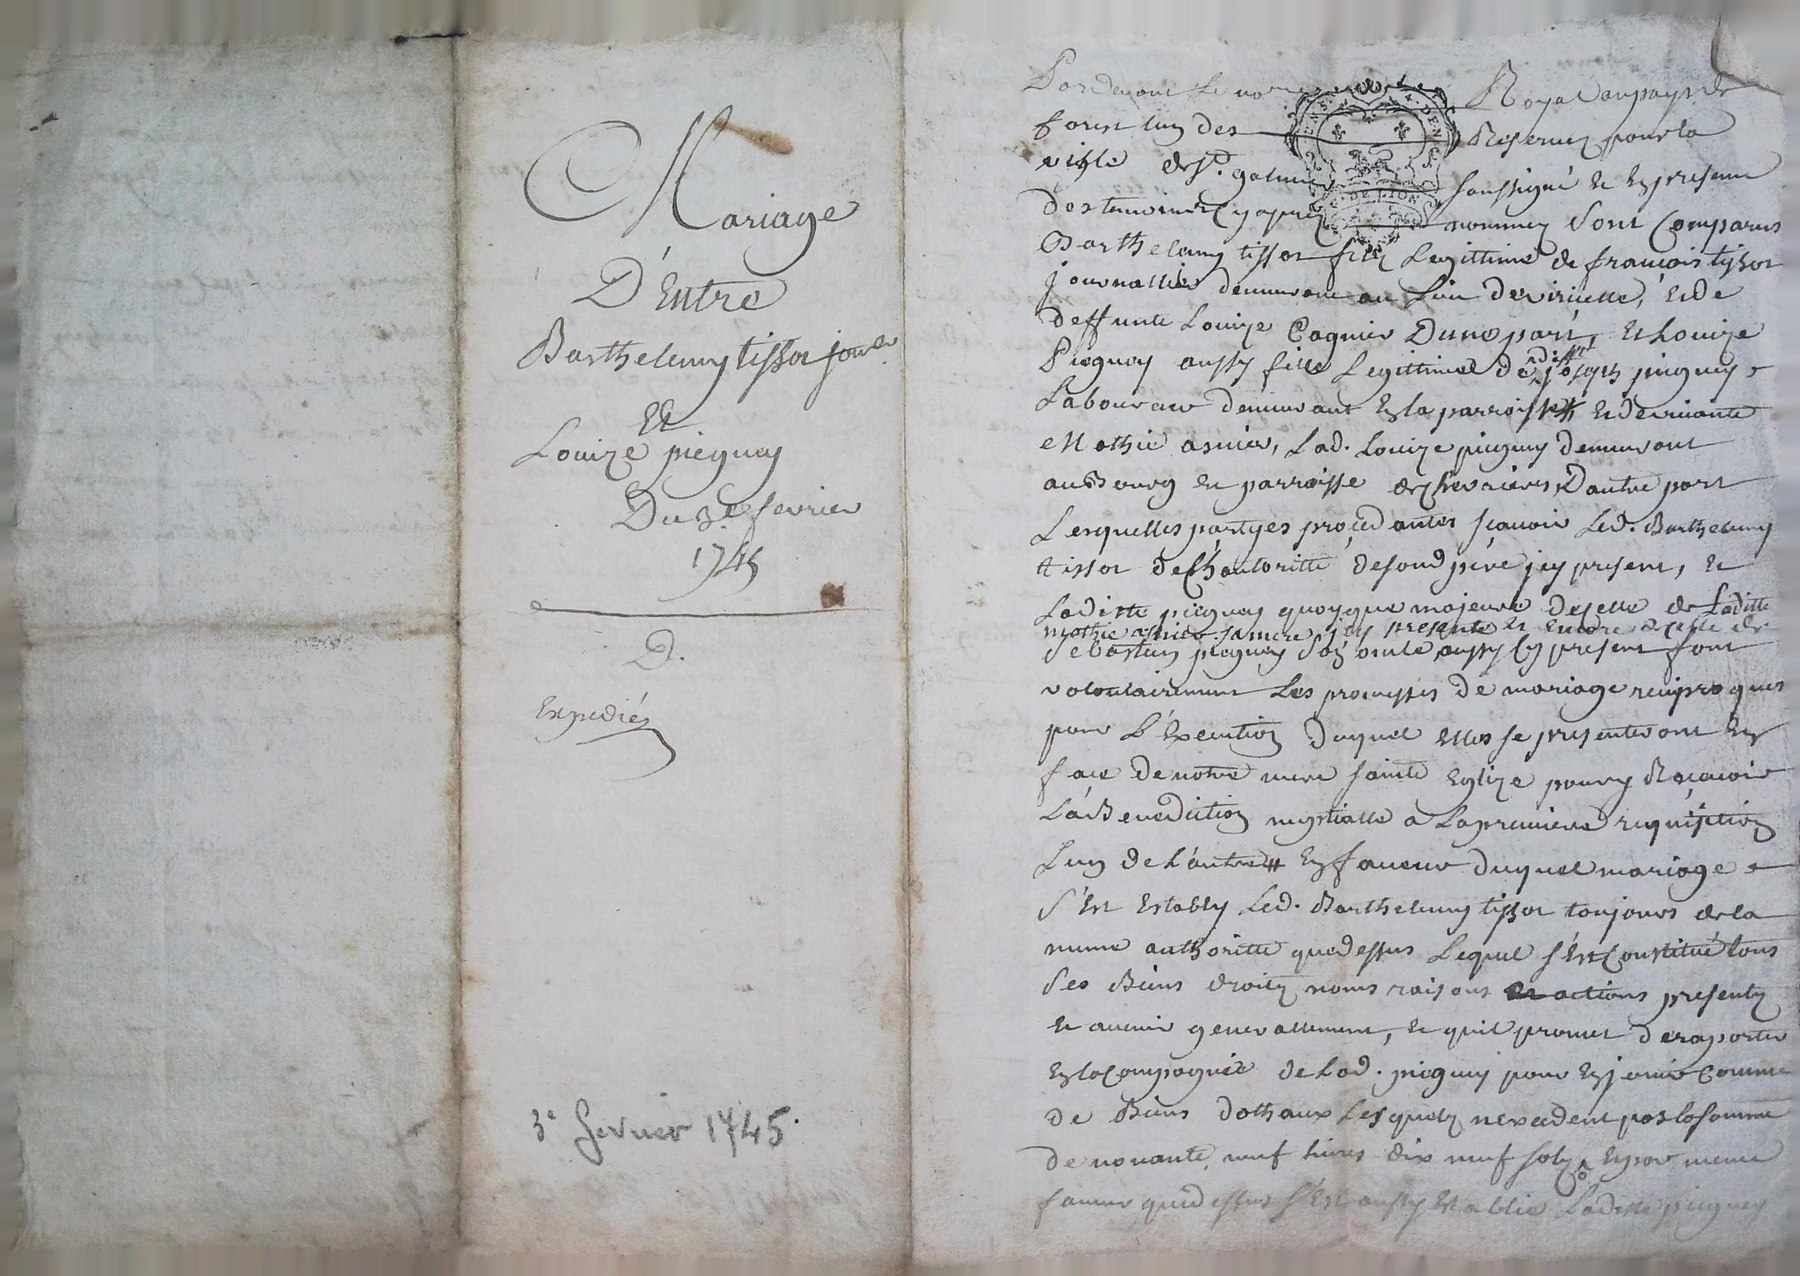 Mariage
D'Entre
Barthelemy tissot jour.er
Et
Louize picquey
Du 3.e fevrier
1745
D.
Expediéz
3e fevrier 1745.
Pardevant Le no.re Royal au pays de
forest lun des Reservez pour la
ville de St. galmier soussigné et En presence
des temoins Cy apres nommez Sont Comparus
Barthelemy tissot filz Legittime de francois tissot
journallier demeurant au Lieu de viricelle, Et de
deffunte Louize Cagnier Dune part, Et Louize
Picquey aussy fille Legittime de deffunt joseph picquey
Laboureur demeurant En la parroisse Et de vivante
Mathie asnier, Lad. Louize picquey demeurant
au Bourg Et parroisse de chevrieres, D'autre part
Lesquelles partyes procedantes scavoir Led. Barthelemy
tissot de L'hautoritté de son d. pere jcy present, Et
Laditte picquey quoyque majeure de celle de Laditte
mathie asnier sa mere jcy presente et encore de celle de
Sebastien picquey Son oncle aussy Cy present font
volontairement Les promesses de mariage reciproques
pour L'Execution duquel Elles se presenteront En
face de notre mere sainte Eglize pour y Recevoir
La Benediction nuptialle a La premiere requisition
Lun de L'autre En faveur duquel mariage
S'Est Estably Led. Barthelemy tissot toujours de la
meme authoritté que dessus Lequel s'Est Constitué tous
Ses Biens droitz noms raisons Et actions presentz
Et avenir generallement, Et quil promet de raporter
En la Compagnie de Lad. picquey pour En jouir Comme
de Biens dothaux Lesquelz n'excedent pas la somme
de nonante neuf livres dix neuf solz Et par meme
faveur que dessus s'Est aussy Establie Laditte picquey